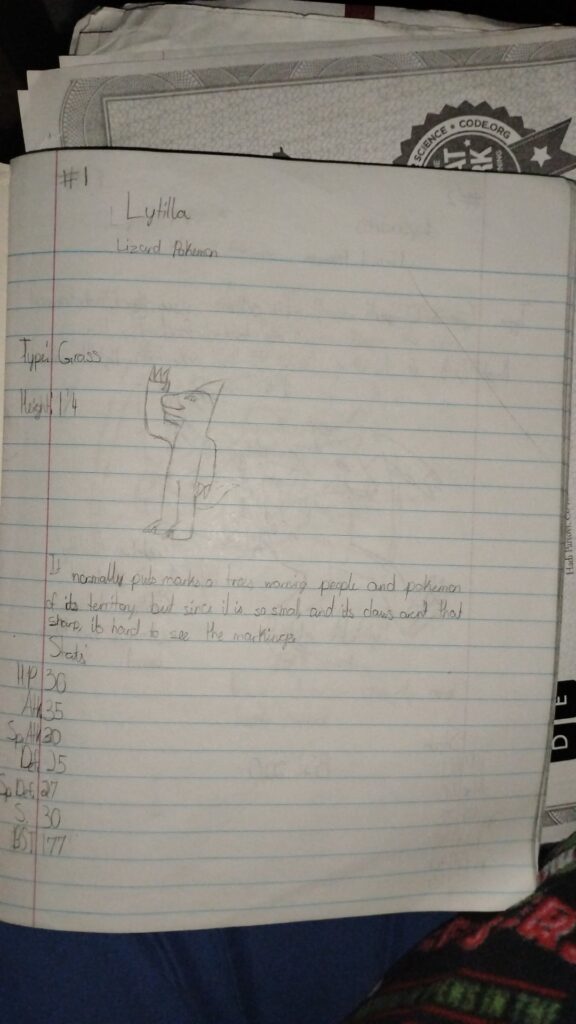 SCIENCE • CODE.ORG
#1
Lytilla
Lizard Pokemon
Type: Grass
Height: 1'4
It normally puts marks on trees warning people and pokemon
of its territory, but since it is so small, and its claws arent that
sharp, its hard to see the markings.
Stats:
HP 30
Atk 35
Sp.Atk 30
Def. 25
Sp Def. 27
S. 30
BST 177
D E